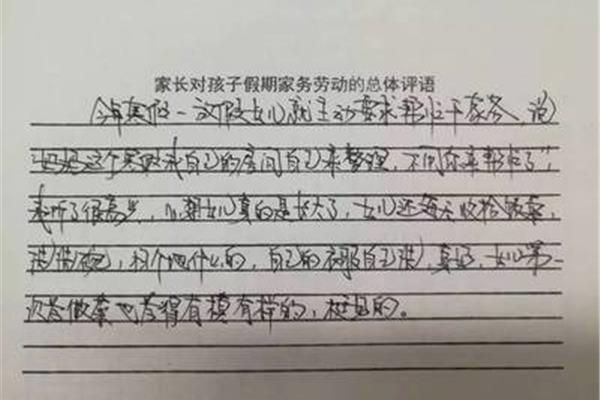 家长对孩子假期家务劳动的总体评语
今年寒假一放假女儿就主动要求帮忙干家务，说
“妈妈这个寒假我自己的房间自己来整理，不用你来帮忙了”，
我听了很高兴，心想女儿真的是长大了，女儿还每天收拾饭桌，
洗洗碗，扫个地什么的，自己的衣服自己洗，真好，女儿第一
次学做菜也学得有模有样的，挺的。